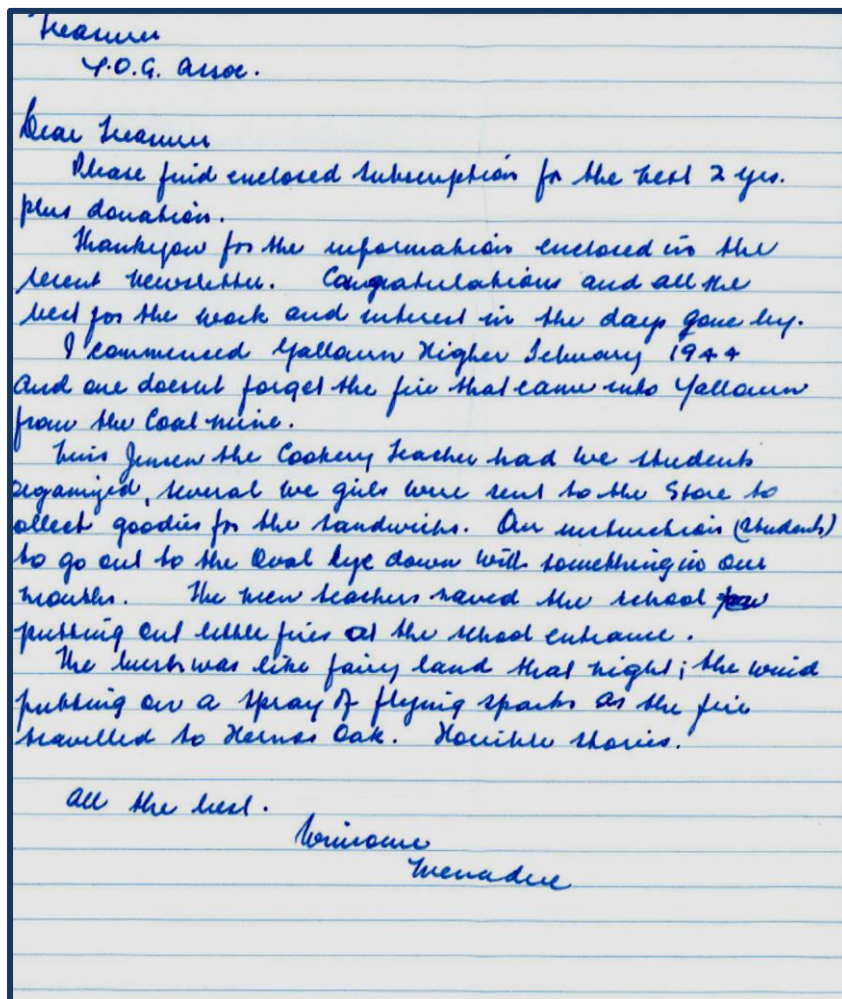 Treasurer
Y.O.G. Assoc.
Dear Treasurer
Please find enclosed subscription for the next 2 yrs.
plus donation.
Thankyou for the information enclosed in the
recent Newsletter. Congratulations and all the
best for the work and interest in the days gone by.
I commenced Yallourn Higher February 1944
and one doesnt forget the fire that came into Yallourn
from the Coal mine.
Miss Jensen the Cookery Teacher had we students
organized, several we girls were sent to the Store to
ollect goodies for the sandwichs. Our instruction (students)
to go out to the Oval lye down with something in our
mouths. The men teachers saved the school
putting out little fires at the school entrance.
The bush was like fairy land that night; the wind
putting on a spray of flying sparks as the fire
travelled to Hernes Oak. Horrible stories.
all the best.
Winsome
Trenadue